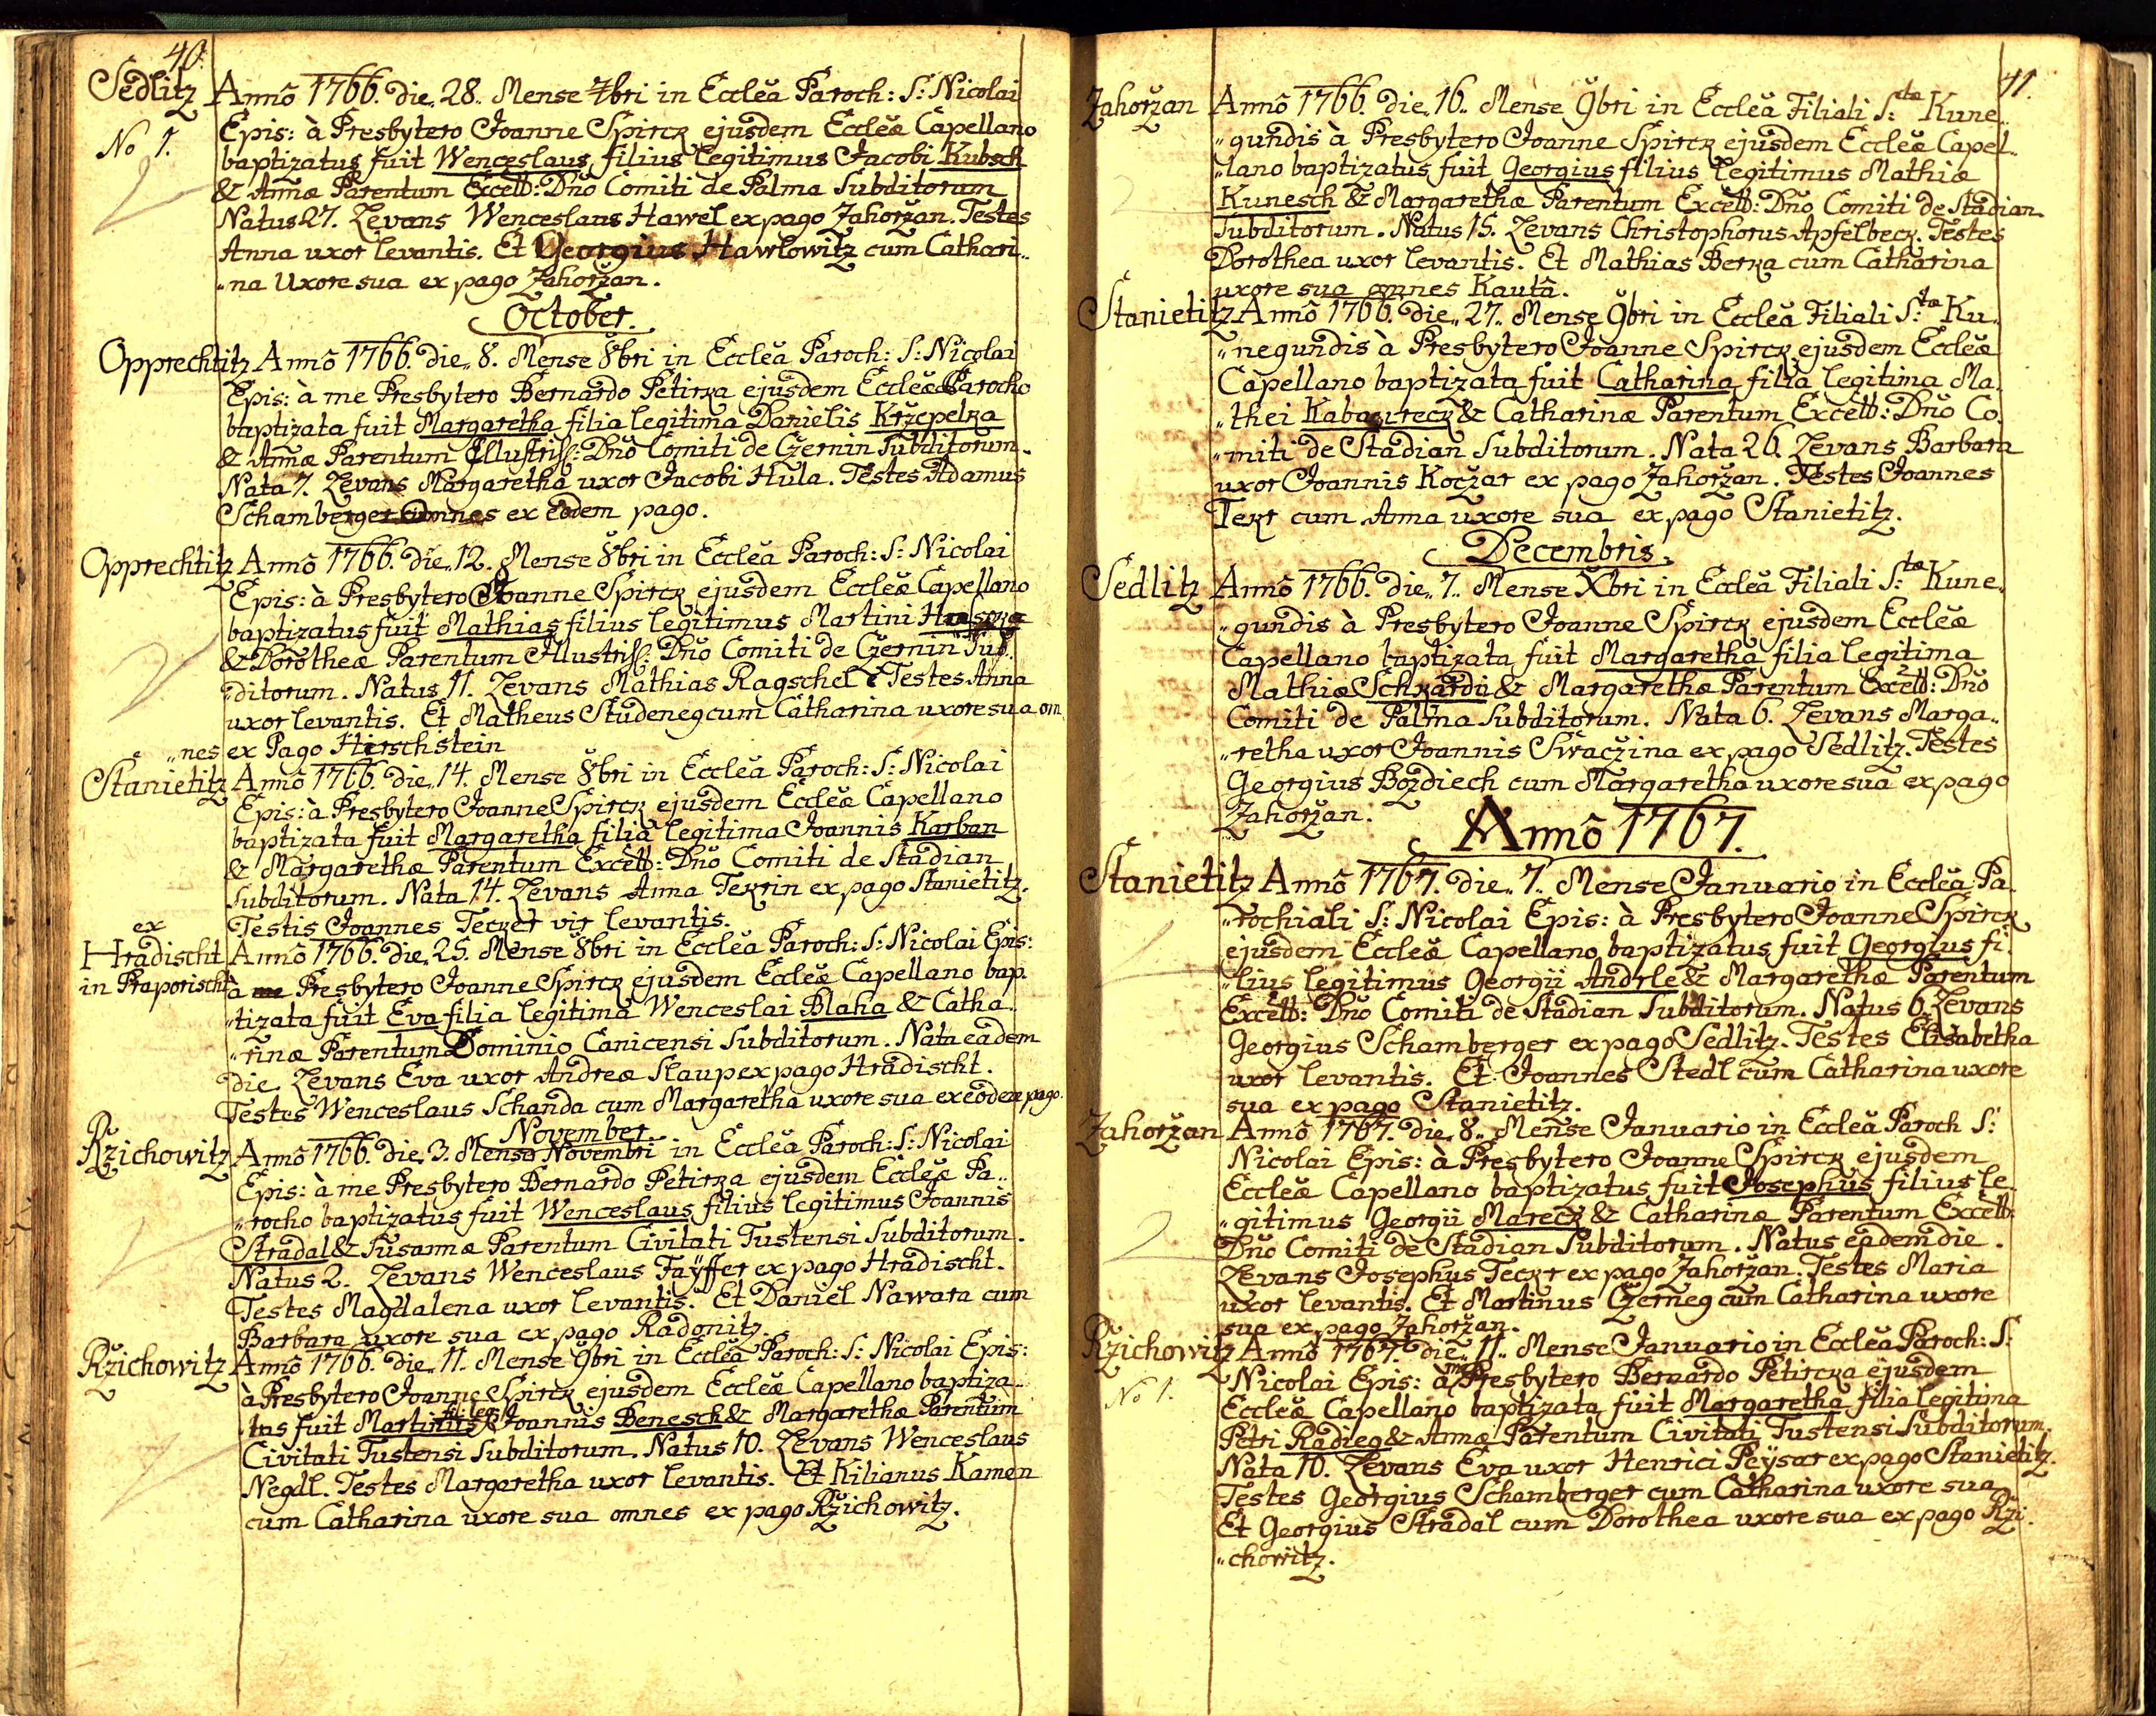 40.
Sedlitz Annô 1766. die,, 28.. Mense 7bri in Eccleã Paroch: S: Nicolai
No 1. Epis: à Presbytero Joanne Spirck ejusdem Eccleæ Capellano
baptizatus fuit Wenceslaus filius legitimus Jacobi Kubsch
& Annæ Parentum Excell: Dnô Comiti de Palma Subditorum
Natus 27. Levans Wenceslaus Hawel ex pago Zahoržan. Testes
Anna uxor levantis. Et Georgius Hawlowitz cum Cathari„
„na Uxore sua ex pago Zahoržan.
October.
Opprechtitz Annô 1766. die,, 8. Mense 8bri in Eccleã Paroch: S: Nicolai
Epis: à me Presbytero Bernardo Petirka ejusdem Eccleæ Parocho
baptizata fuit Margaretha filia legitima Danielis Kržepelka
& Annæ Parentum Illustriss: Dnô Comiti de Czernin Subditorum.
Nata 7. Levans Margaretha uxor Jacobi Hula. Testes Adamus
Schamberger omnes ex eodem pago.
Opprechtitz Annô 1766. die,, 12. Mense 8bri in Eccleã Paroch: S: Nicolai
Epis: à Presbytero Joanne Spirck ejusdem Eccleæ Capellano
baptizatus fuit Mathias filius legitimus Martini
& Dorotheæ Parentum Illustriss: Dnô Comiti de Czernin Sub„
„ditorum. Natus 11. Levans Mathias Ragschel Testes Anna
uxor levantis. Et Matheus Studeneg cum Catharina uxore sua om„
„nes ex Pago Hirschstein
Stanietitz Annô 1766. die,, 14. Mense 8bri in Eccleã Paroch: S: Nicolai
Epis: à Presbytero Joanne Spirck ejusdem Eccleæ Capellano
baptizata fuit Margaretha filia legitima Joannis Karban
& Margarethæ Parentum Excell: Dnô Comiti de Stadian
Subditorum. Nata 14. Levans Anna Tekrin ex pago Stanietitz.
Testis Joannes Tecker vir levantis.
ex
Hradischt Annô 1766. die,, 25. Mense 8bri in Eccleã Paroch: S: Nicolai Epis:
in Praporischt à me Presbytero Joanne Spirck ejusdem Eccleæ Capellano bap„
„tizata fuit Eva filia legitima Wenceslai Blaha & Catha„
„rinæ Parentum Dominio Canicensi Subditorum. Nata eadem
die. Levans Eva uxor Andreæ Slaup ex pago Hradischt.
Testes Wenceslaus Schanda cum Margaretha uxore sua ex eodem pago.
November.
Ržichowitz Annô 1766. die,, 3. Mense Novembri in Eccleã Paroch: S: Nicolai
Epis: à me Presbytero Bernardo Petirka ejusdem Eccleæ Pa„
„rocho baptizatus fuit Wenceslaus filius legitimus Joannis
Stradal & Susannæ Parentum Civitati Tustensi Subditorum.
Natus 2. Levans Wenceslaus Fayffer ex pago Hradischt.
Testes Magdalena uxor levantis. Et Daniel Nawara cum
Barbara uxore sua ex pago Radonitz.
Ržichowitz Annô 1766. die,, 11. Mense 9bri in Eccleã Paroch: S: Nicolai Epis:
à Presbytero Joanne Spirck ejusdem Eccleæ Capellano baptiza„
fil: leg:
tus fuit Martinus Joannis Benesch & Margarethæ Parentum
Civitati Tustensi Subditorum. Natus 10. Levans Wenceslaus
Negdl. Testes Margaretha uxor levantis. Et Kilianus Kamen
cum Catharina uxore sua omnes ex pago Ržichowitz.
41.
Zahoržan Annô 1766. die,, 16.. Mense 9bri in Eccleã Filiali S:tæ Kune„
„gundis à Presbytero Joanne Spirck ejusdem Eccleæ Capel„
„lano baptizatus fuit Georgius filius legitimus Mathiæ
Kunesch & Margarethæ Parentum Excell: Dnô Comiti de Stadian
Subditorum. Natus 15. Levans Christophorus Apfelbeck. Testes
Dorothea uxor levantis. Et Mathias Berka cum Catharina
uxore sua omnes Kautâ.
Stanietitz Annô 1766. die,, 27.. Mense 9bri in Eccleã Filiali S:tæ Ku„
„negundis à Presbytero Joanne Spirck ejusdem Eccleæ
Capellano baptizata fuit Catharina filia legitima Ma„
„thei & Catharinæ Parentum Excell: Dnô Co„
„miti de Stadian Subditorum. Nata 26. Levans Barbara
uxor Joannis Koczar ex pago Zahoržan. Testes Joannes
Tekr cum Anna uxore sua ex pago Stanietitz.
Decembris.
Sedlitz Annô 1766. die,, 7.. Mense Xbri in Eccleã Filiali S:tæ Kune„
„gundis à Presbytero Joanne Spirck ejusdem Eccleæ
Capellano baptizata fuit Margaretha filia legitima
Mathiæ & Margarethæ Parentum Excell: Dnô
Comiti de Palma Subditorum. Nata 6. Levans Marga„
„retha uxor Joannis Swaczina ex pago Sedlitz. Testes
Georgius Bozdiech cum Margaretha uxore sua ex pago
Zahoržan.
Annô 1767.
Stanietitz Annô 1767. die,, 7.. Mense Januario in Eccleã Pa„
„rochiali S: Nicolai Epis: à Presbytero Joanne Spirck
ejusdem Eccleæ Capellano baptizatus fuit Georgius fi„
„lius legitimus Georgii Andrle & Margarethæ Parentum
Excell: Dnô Comiti de Stadian Subditorum. Natus 6. Levans
Georgius Schamberger ex pago Sedlitz. Testes Elisabetha
uxor levantis. Et Joannes Stedl cum Catharina uxore
sua ex pago Stanietitz.
Zahoržan Annô 1767. die,, 8.. Mense Januario in Eccleã Paroch S:
Nicolai Epis: à Presbytero Joanne Spirck ejusdem
Eccleæ Capellano baptizatus fuit Josephus filius le„
„gitimus Georgii Mareck & Catharinæ Parentum Excell:
Dnô Comiti de Stadian Subditorum. Natus eadem die.
Levans Josephus Teckr ex pago Zahoržan. Testes Maria
uxor levantis. Et Martinus Czerneg cum Catharina uxore
sua ex pago Zahoržan.
Ržichowitz Annô 1767. die,, 11.. Mense Januario in Eccleã Paroch: S:
No 1. Nicolai Epis: à me Presbytero Bernardo Petircka ejusdem
Eccleæ Capellano baptizata fuit Margaretha filia legitima
Petri Radieg & Annæ Parentum Civitati Tustensi Subditorum.
Nata 10. Levans Eva uxor Henrici Peysar ex pago Stanietitz.
Testes Georgius Schamberger cum Catharina uxore sua
Et Georgius Stradal cum Dorothea uxore sua ex pago Rži„
„chowitz.